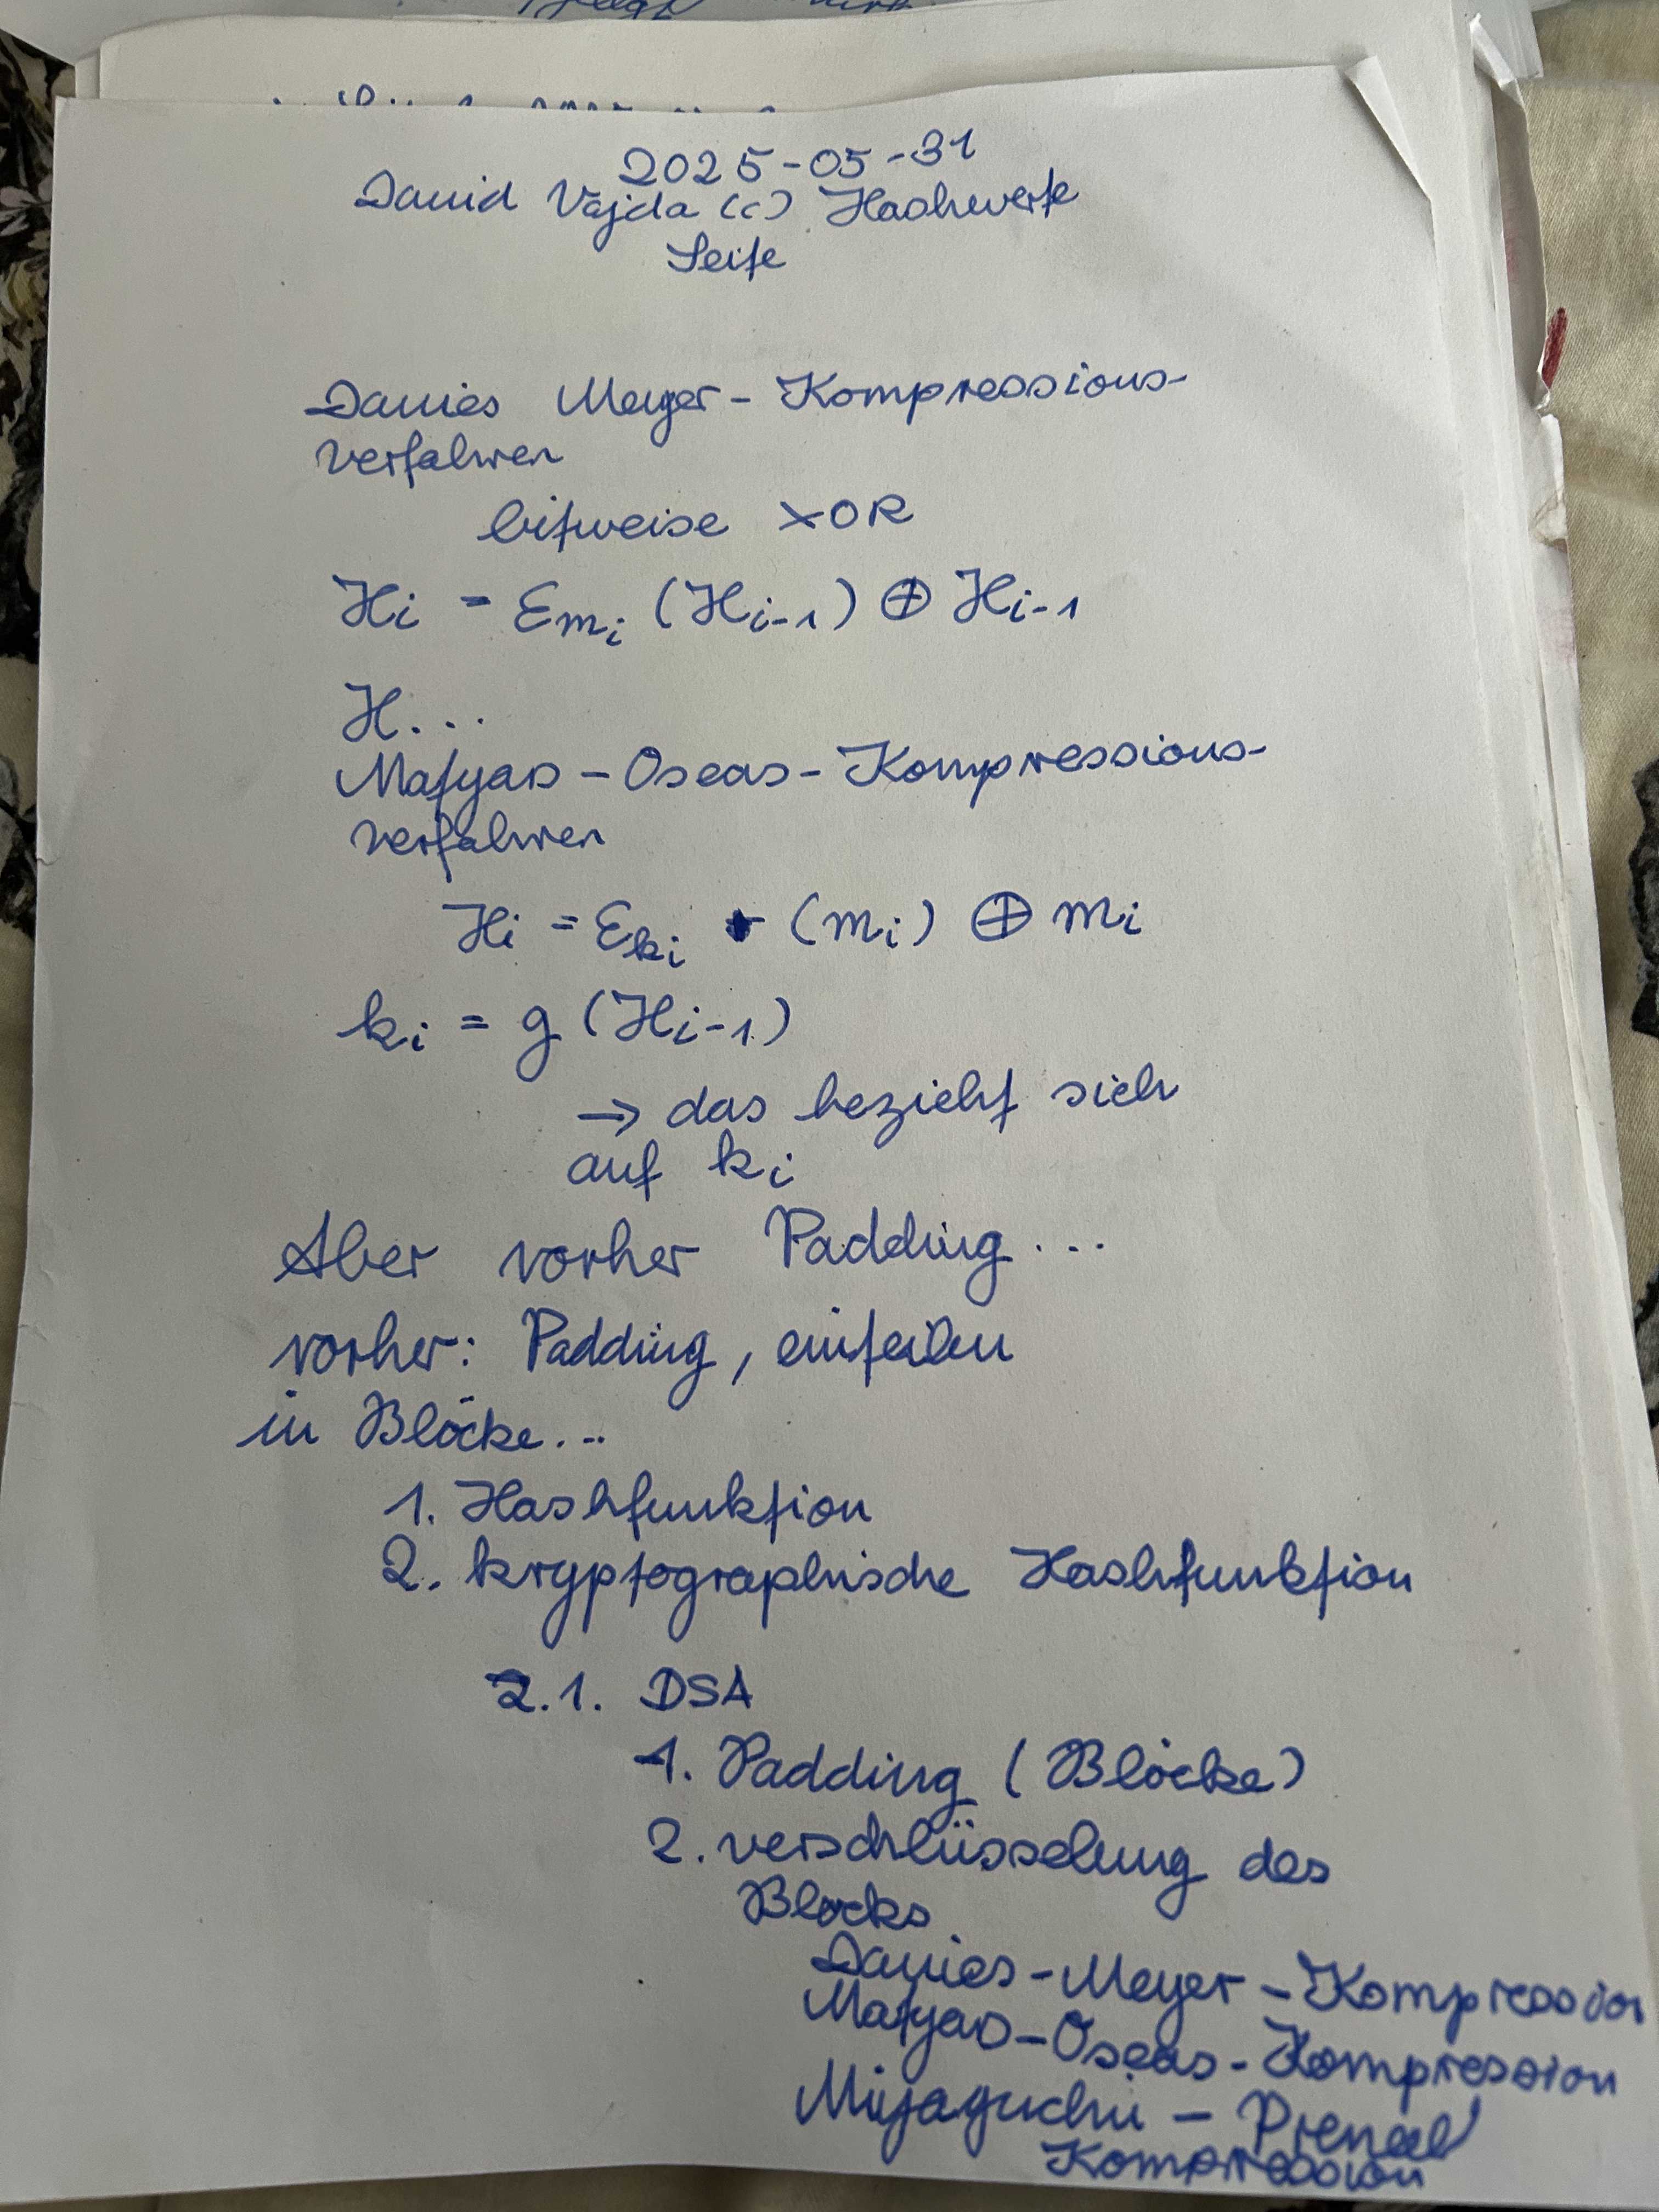 2025-05-31
David Vajda (c) Hashwerte
Seite
Davies Meyer - Kompressions-
verfahren
bitweise XOR
Hi = Emi (Hi-1) ⊕ Hi-1
H...
Matyas - Oseas - Kompressions-
verfahren
Hi = Eki (mi) ⊕ mi
ki = g (Hi-1)
→ das bezieht sich
auf ki
Aber vorher Padding ...
vorher: Padding, einteilen
in Blöcke...
1. Hashfunktion
2. kryptographische Hashfunktion
2.1. DSA
1. Padding (Blöcke)
2. verschlüsselung des
Blocks
Davies - Meyer - Kompression
Matyas - Oseas - Kompression
Miyaguchi - Preneel
Kompression